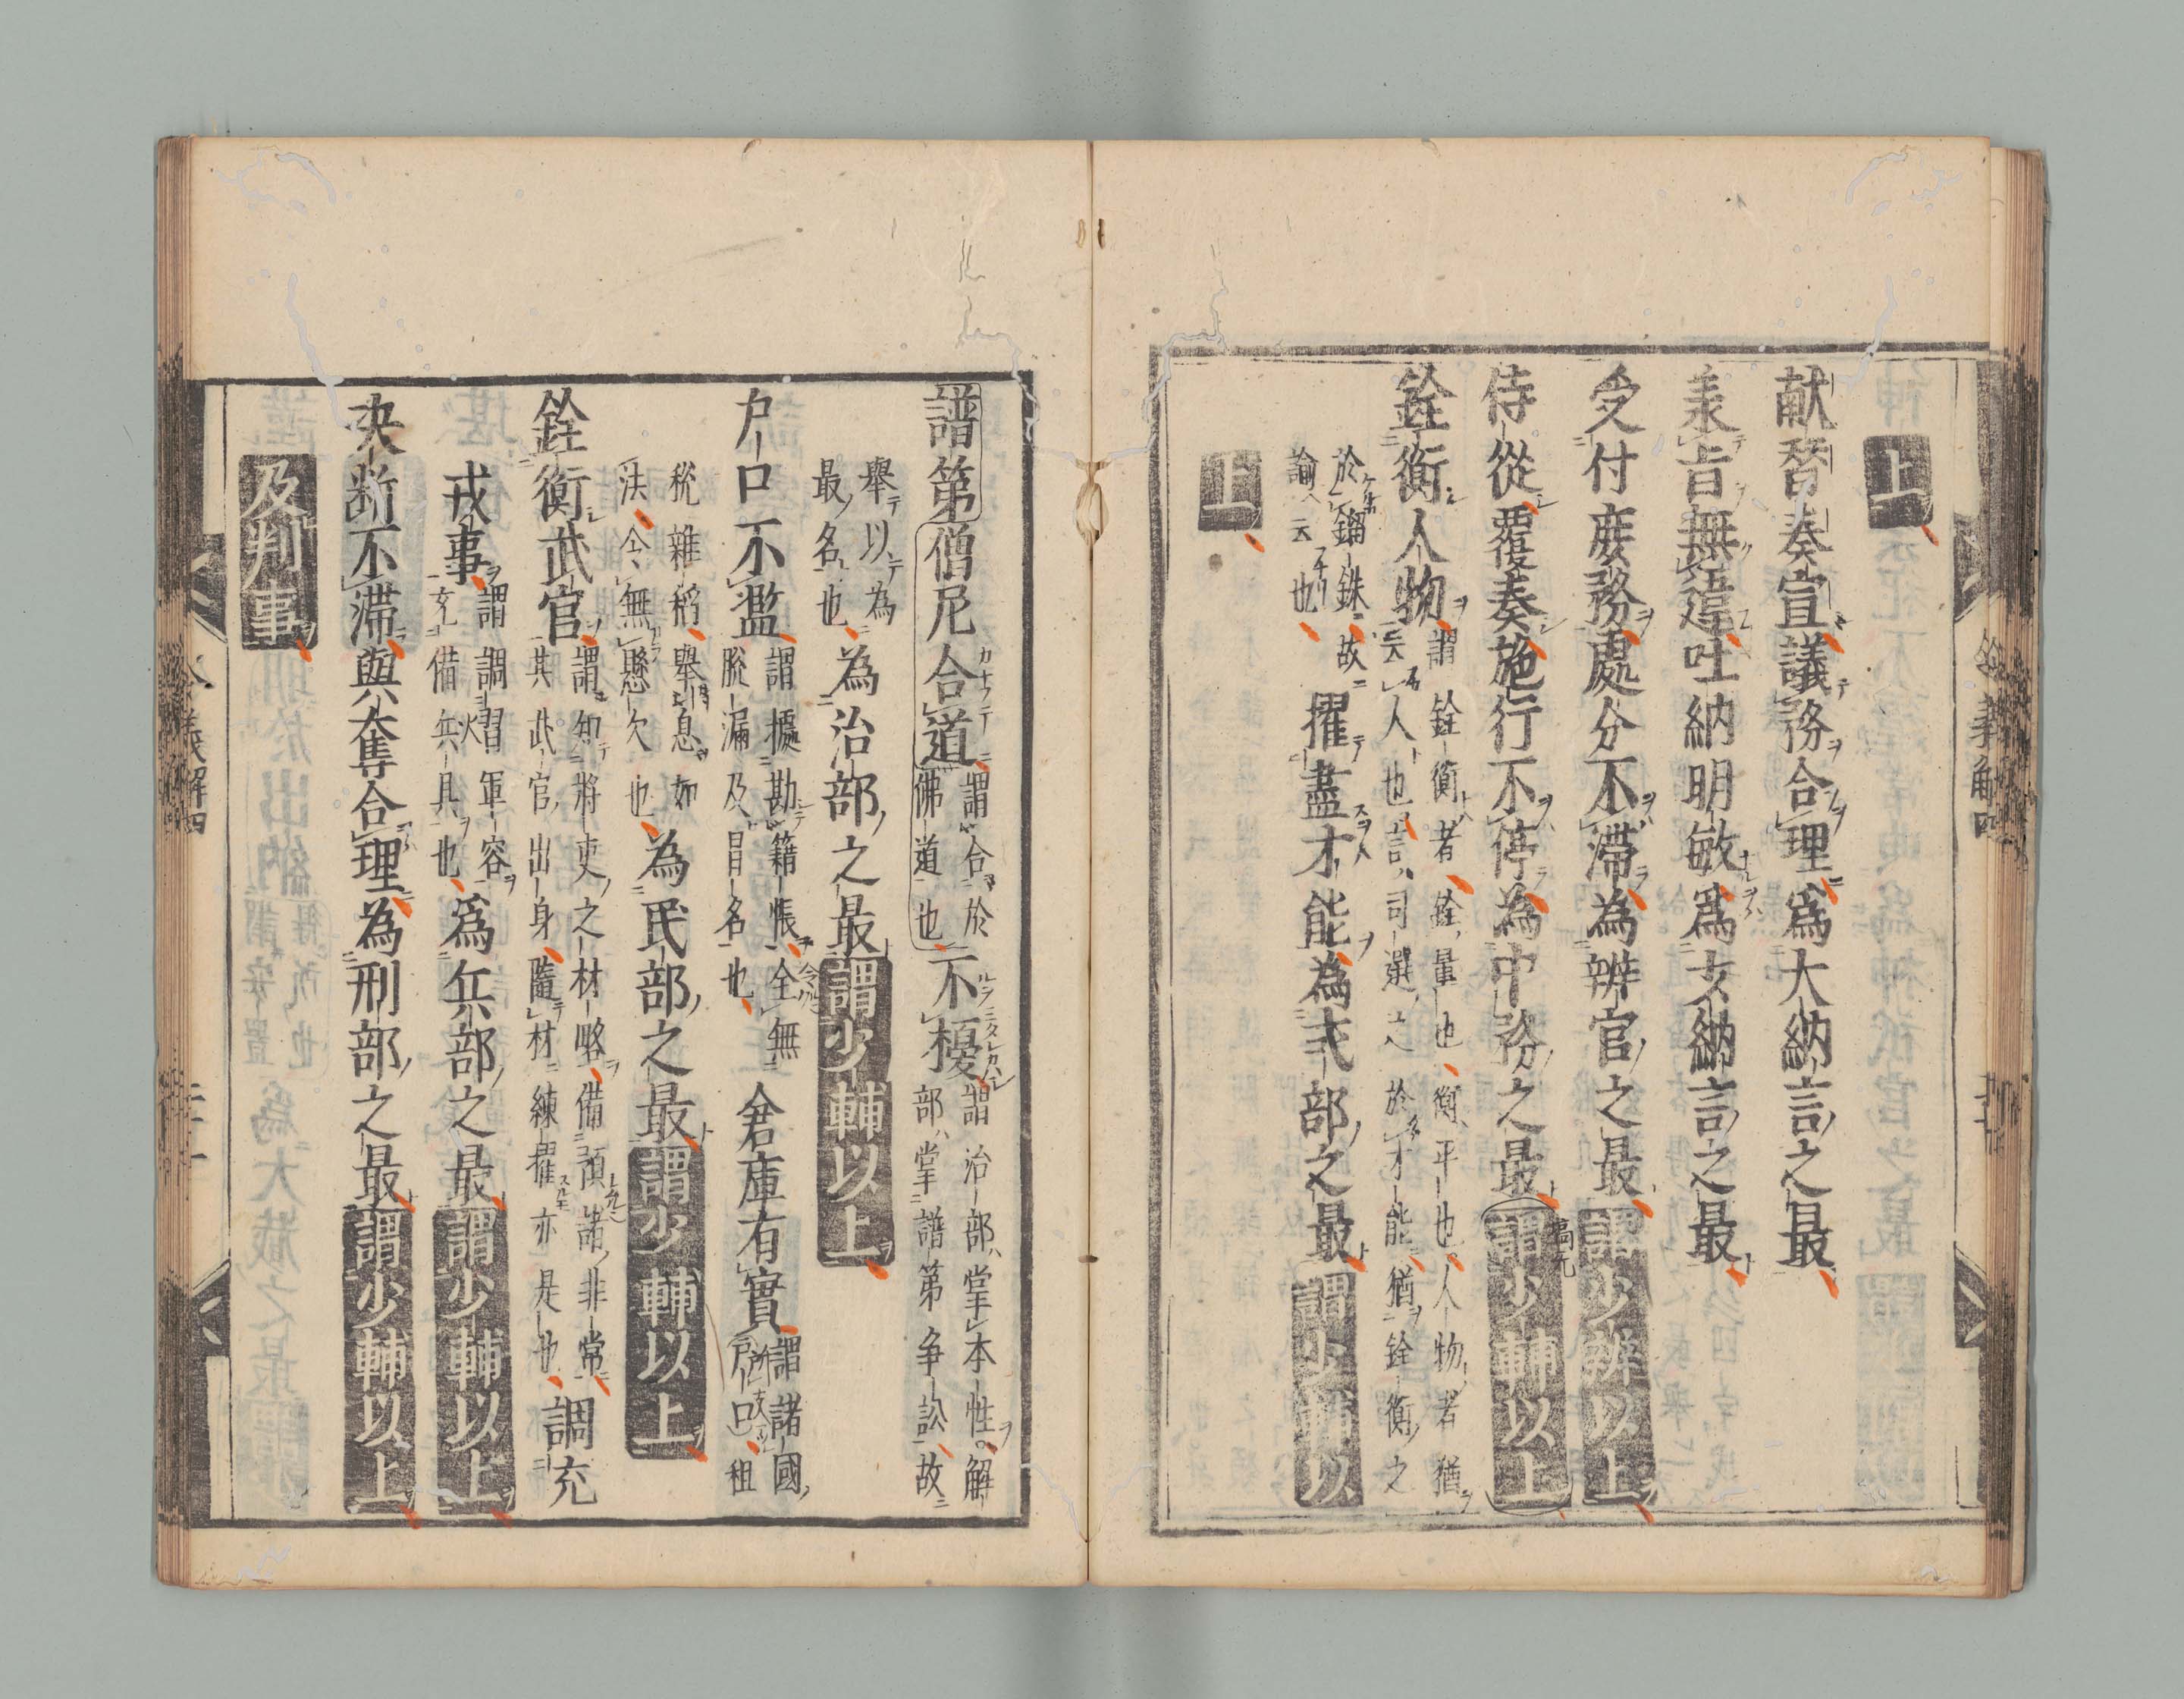 上
献替奏宣議務合理爲大納言之最
羕旨無違吐納明敏爲少納言之最
受付庶務處分不滯為辨官之最謂少辨以上
侍從覆奏施行不停為中務之最謂少輔以上
銓衡人物謂銓衡者銓量也衡平也人物者猶
云人也言司選之於才能猶銓衡之
於錙銖故
論云也
擢盡才能為式部之最謂少輔以
上
令義解四
譜第僧尼合道謂合於
佛道也
不擾謂治部掌本性解
部掌譜第争訟故
舉以為
最名也
為治部之最謂少輔以上
戸口不濫謂據勘籍帳全無
脫漏及冒名也
倉庫有實謂諸國
所有戸口租
税雜稻舉息如
法令無懸欠也
為民部之最謂少輔以上
銓衡武官謂知將吏之材略備預諸非常
其武官出身隨材練擢亦是也
調充
戎事謂調習軍容
充備兵具也
為兵部之最謂少輔以上
决断不滞與奪合理為刑部之最謂少輔以上
及判事
令義解四